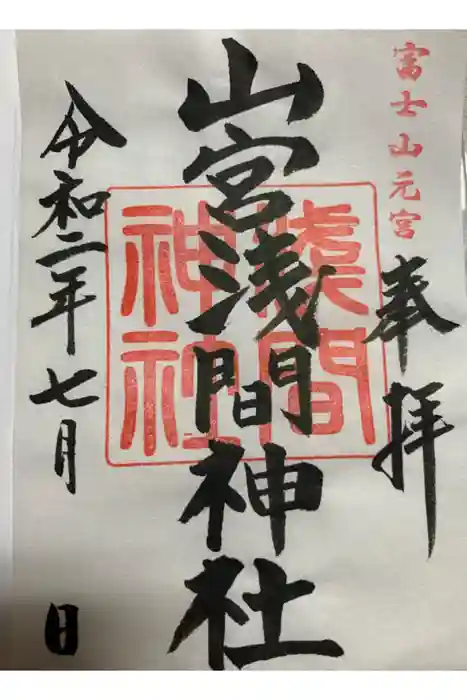 富士山元宮
奉拝
山宮浅間神社
淺間
神社
令和二年七月 日